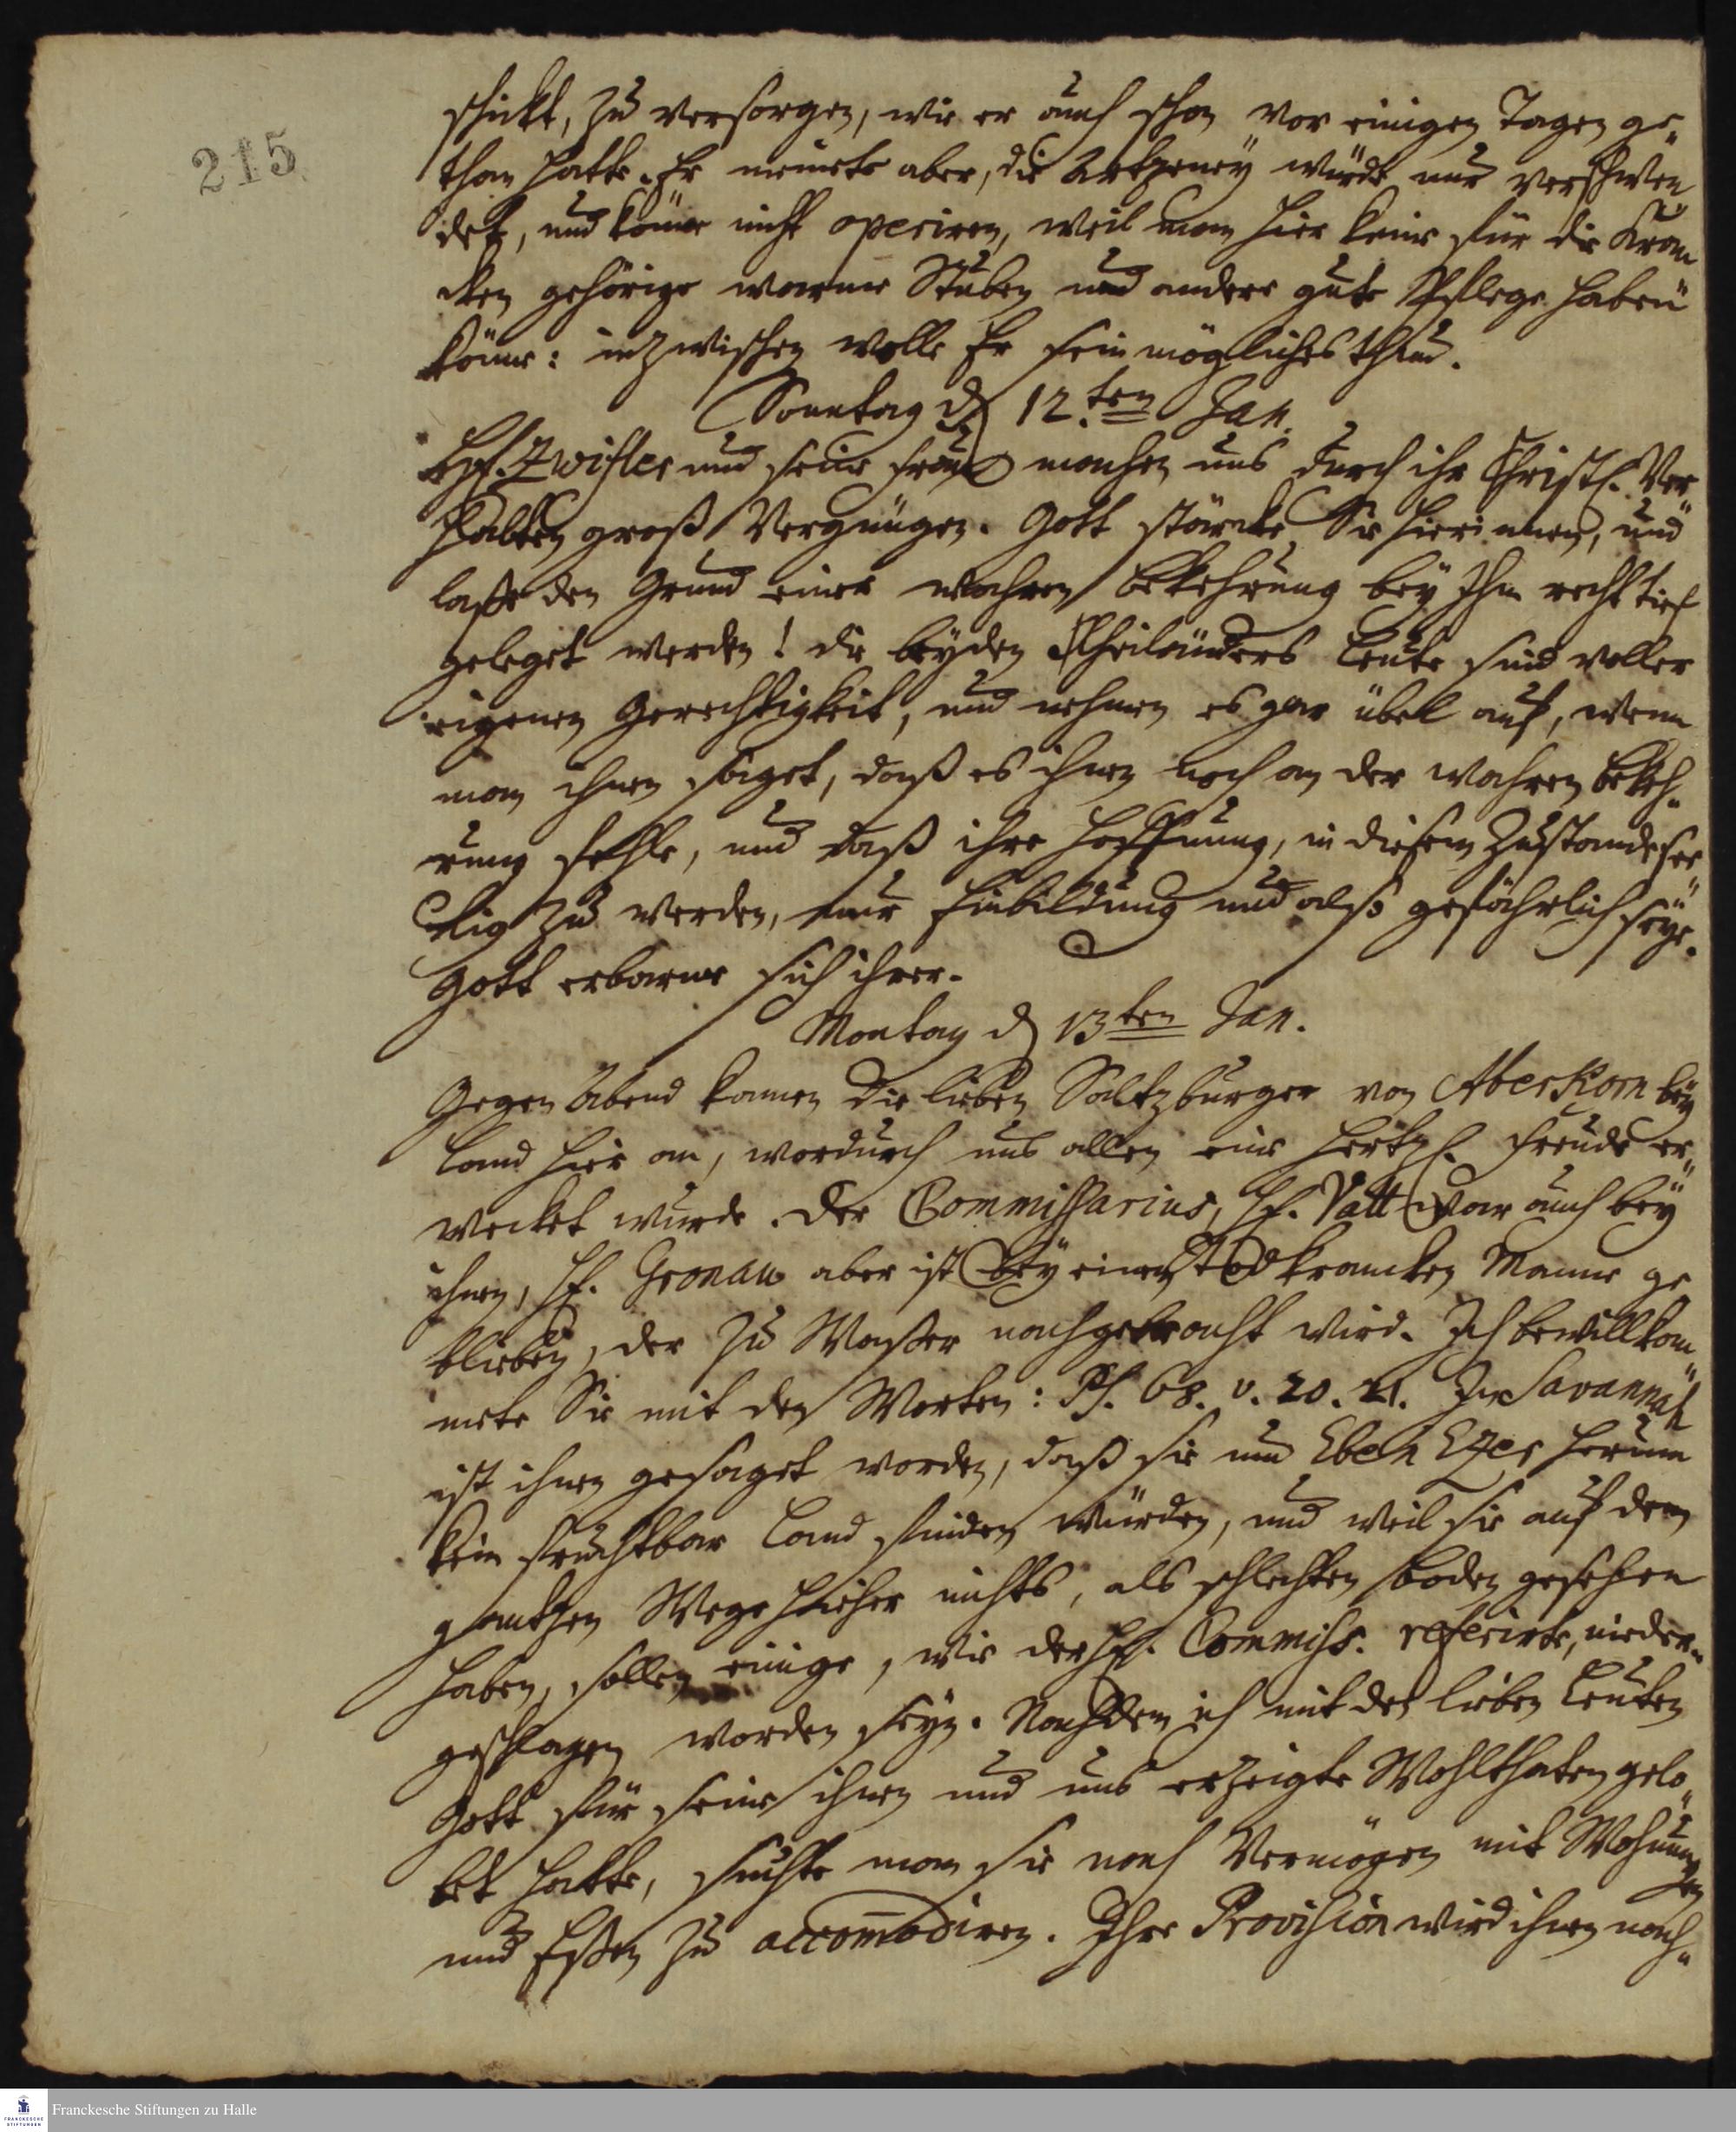 215
schickt, zu versorgen, wie er auch schon vor einigen Tagen ge„
than hatte. Er meinete aber, die Artzeney würde nur verschwen„
det, und könne nicht operiren, weil man hier keine für die Kran„
cken gehörige warme Stuben und andere gute Pflege haben
könne: inzwischen wolle Er sein mögliches thun.
Sonntag d 12.ten Jan.
H. Zwifler und seine Frau machen uns durch ihr Christl. Ver„
halten groß Vergnügen. Gott stärcke Sie hierinnen, und
laße den Grund einer wahren Bekehrung bey Ihn recht tief
geleget werden! die beyden Rheiländers Leute sind voller
eigenen Gerechtigkeit, und nehmen es gar übel auf, wenn
man ihnen saget, daß es ihnen noch an der wahren Bekeh„
rung fehle, und daß ihre Hoffnung, in diesem Zustande see„
lig zu werden, nur Einbildung und also gefährlich seye.
Gott erbarme sich ihrer.
Montag d 13ten Jan.
Gegen Abend kamen die lieben Saltzburger von Aberkorn bey
Land hier an, wordurch uns allen eine hertzl. Freude er„
wecket wurde. Der Commissarius, H. Vatt war auch bey
ihnen, H. Gronau aber ist bey einem Todkrancken Manne ge„
blieben, der zu Waßer nachgebracht wird. Ich bewillkom„
mete Sie mit den Worten: Ps. 68. v. 20. 21. In Savannah
ist ihnen gesaget worden, daß sie um Eben Ezer herum
kein fruchtbar Land finden würden, und weil sie auf dem
gantzen Wege hieher nichts, als schlechten Boden gesehen
haben, sollen einige, wie der H. Commiss. referirte, nieder„
geschlagen worden seyn. Nachdem ich mit den lieben Leuten
Gott für seine ihnen und uns erzeigte Wohlthaten gelo„
bet hatte, suchte man sie nach Vermögen mit Wohnungen
und Eßen zu accom̄odiren. Ihre Provision wird ihnen nach„
Franckesche Stiftungen zu Halle